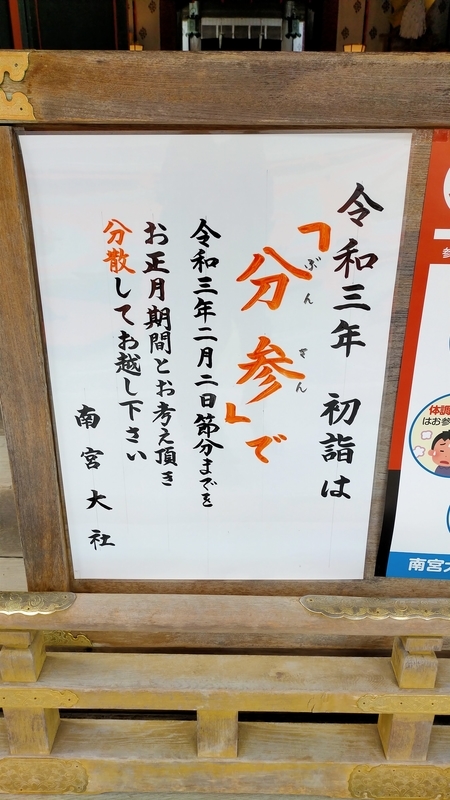 令和三年 初詣は
「分参」で
ぶん さん
令和三年二月二日節分までを
お正月期間とお考え頂き
分散してお越し下さい
南宮大社
体調
はお参
南宮大